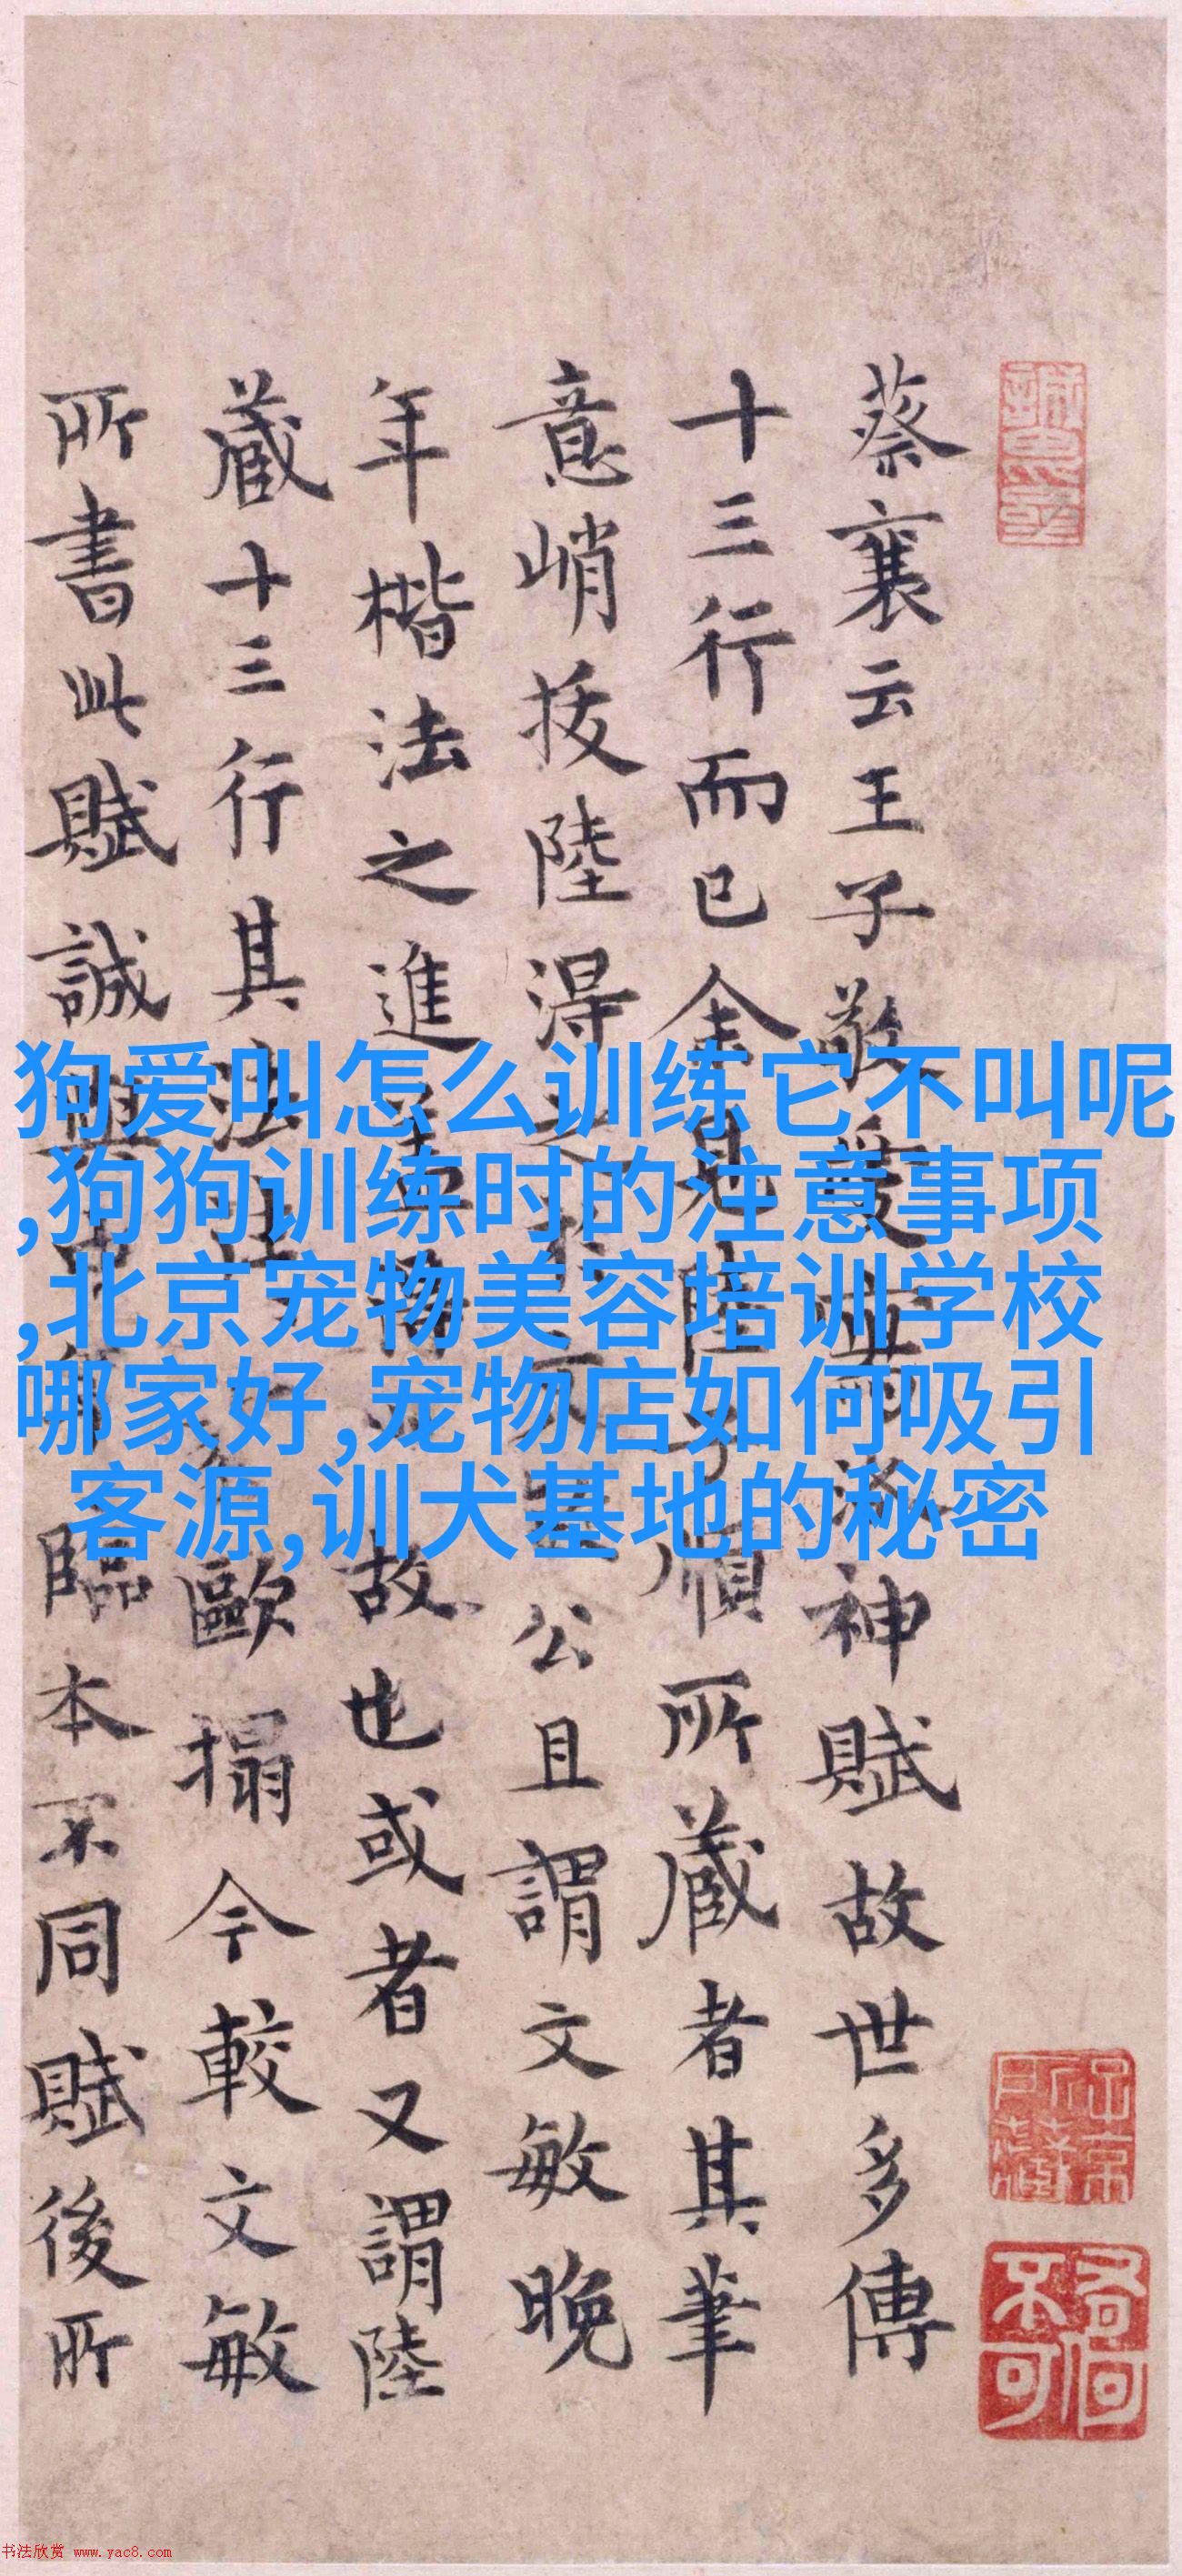 蔡襄云王子敬愛洛神賦故世多傳
十三行而已余見陸子順所藏者其筆
意峭拔陸得公且謂文敏晚
年楷法之進故也或者又謂陸
藏十三行其法歐搨今較文敏
所書此賦誠與臨本不同賦後所
狗爱叫怎么训练它不叫呢
,狗狗训练时的注意事项
,北京宠物美容培训学校
哪家好,宠物店如何吸引
客源,训犬基地的秘密
书法欣赏 www.yac8.com